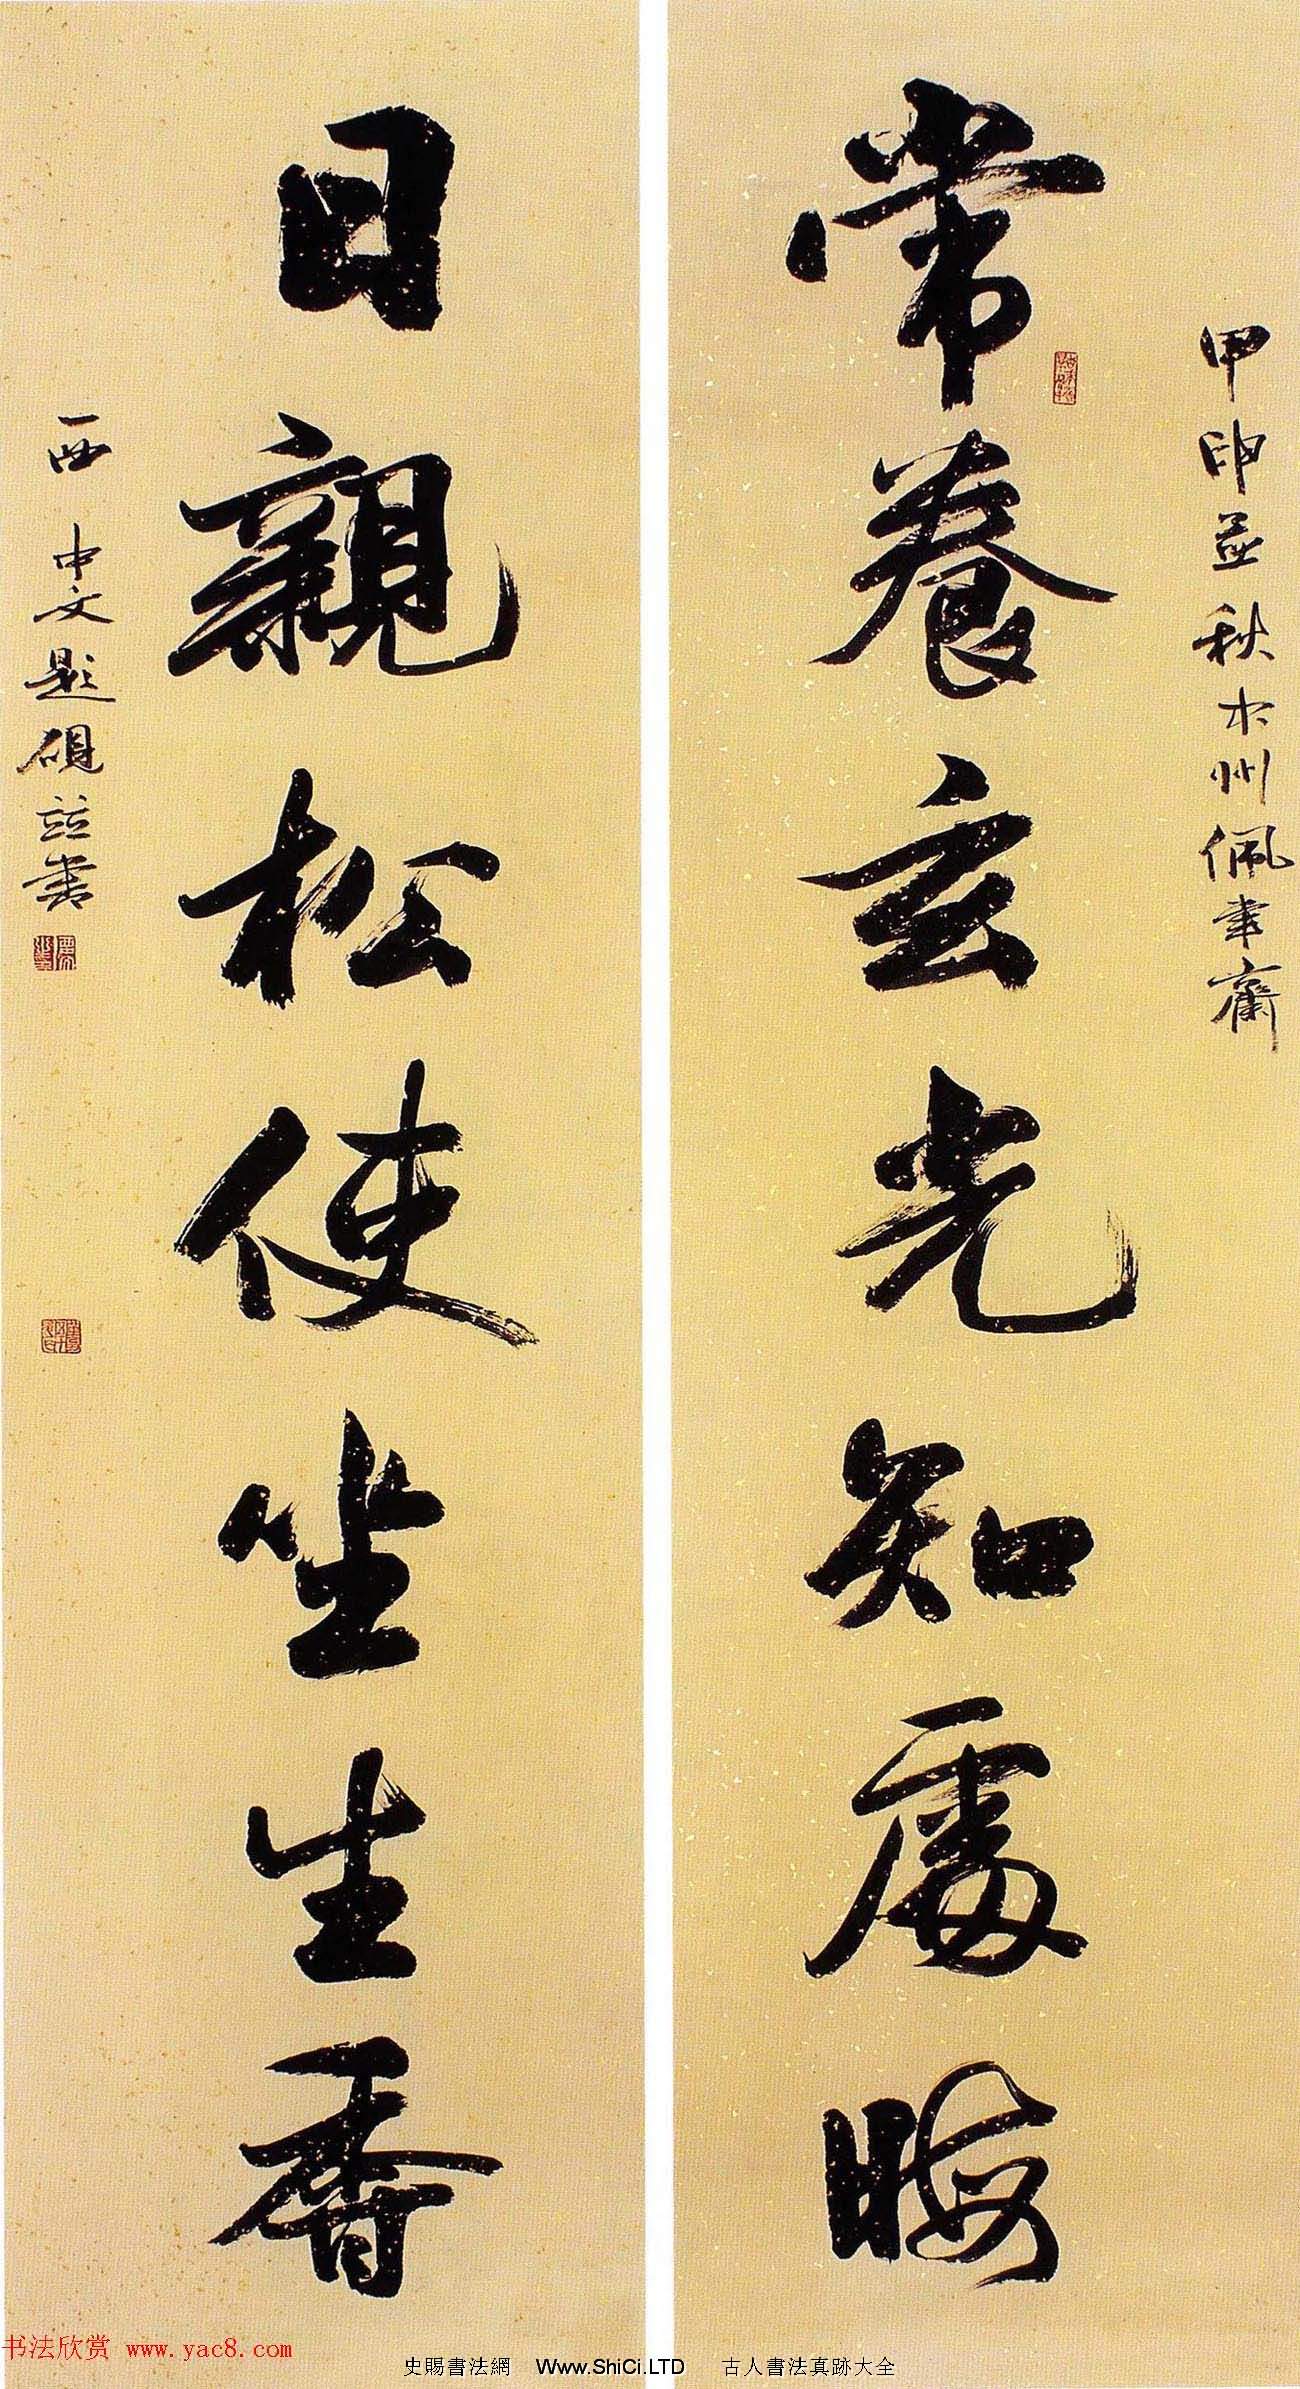 甲申孟秋于州佩韦斋
常養玄光知處晦
日親松使坐生香
西中文題硯並書
书法欣赏 www.yac8.com
史賜書法網 Www.ShiCi.LTD 古人書法真跡大全